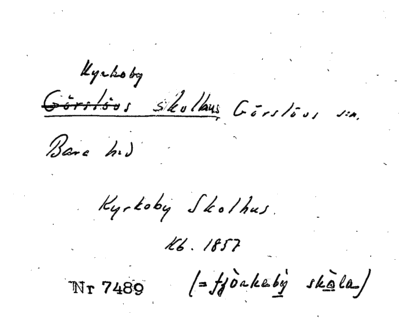 Kyrkoby
Görslövs skolhus, Görslövs sn.
Bara hd
Kyrkoby Skolhus.
Kb. 1857
Nr 7489 (= fjörkaby skåla)